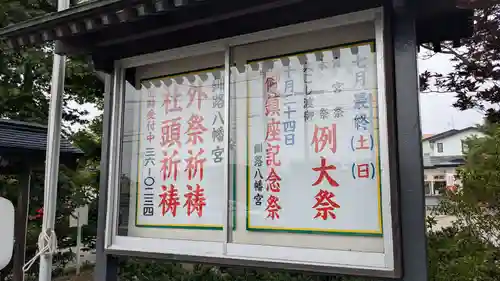 七月最終(土)(日)
宮祭
例大祭
十月二十四日
鎮座記念祭
釧路八幡宮
釧路八幡宮
外祭祈祷
社頭祈祷
受付中
三六-〇二三四